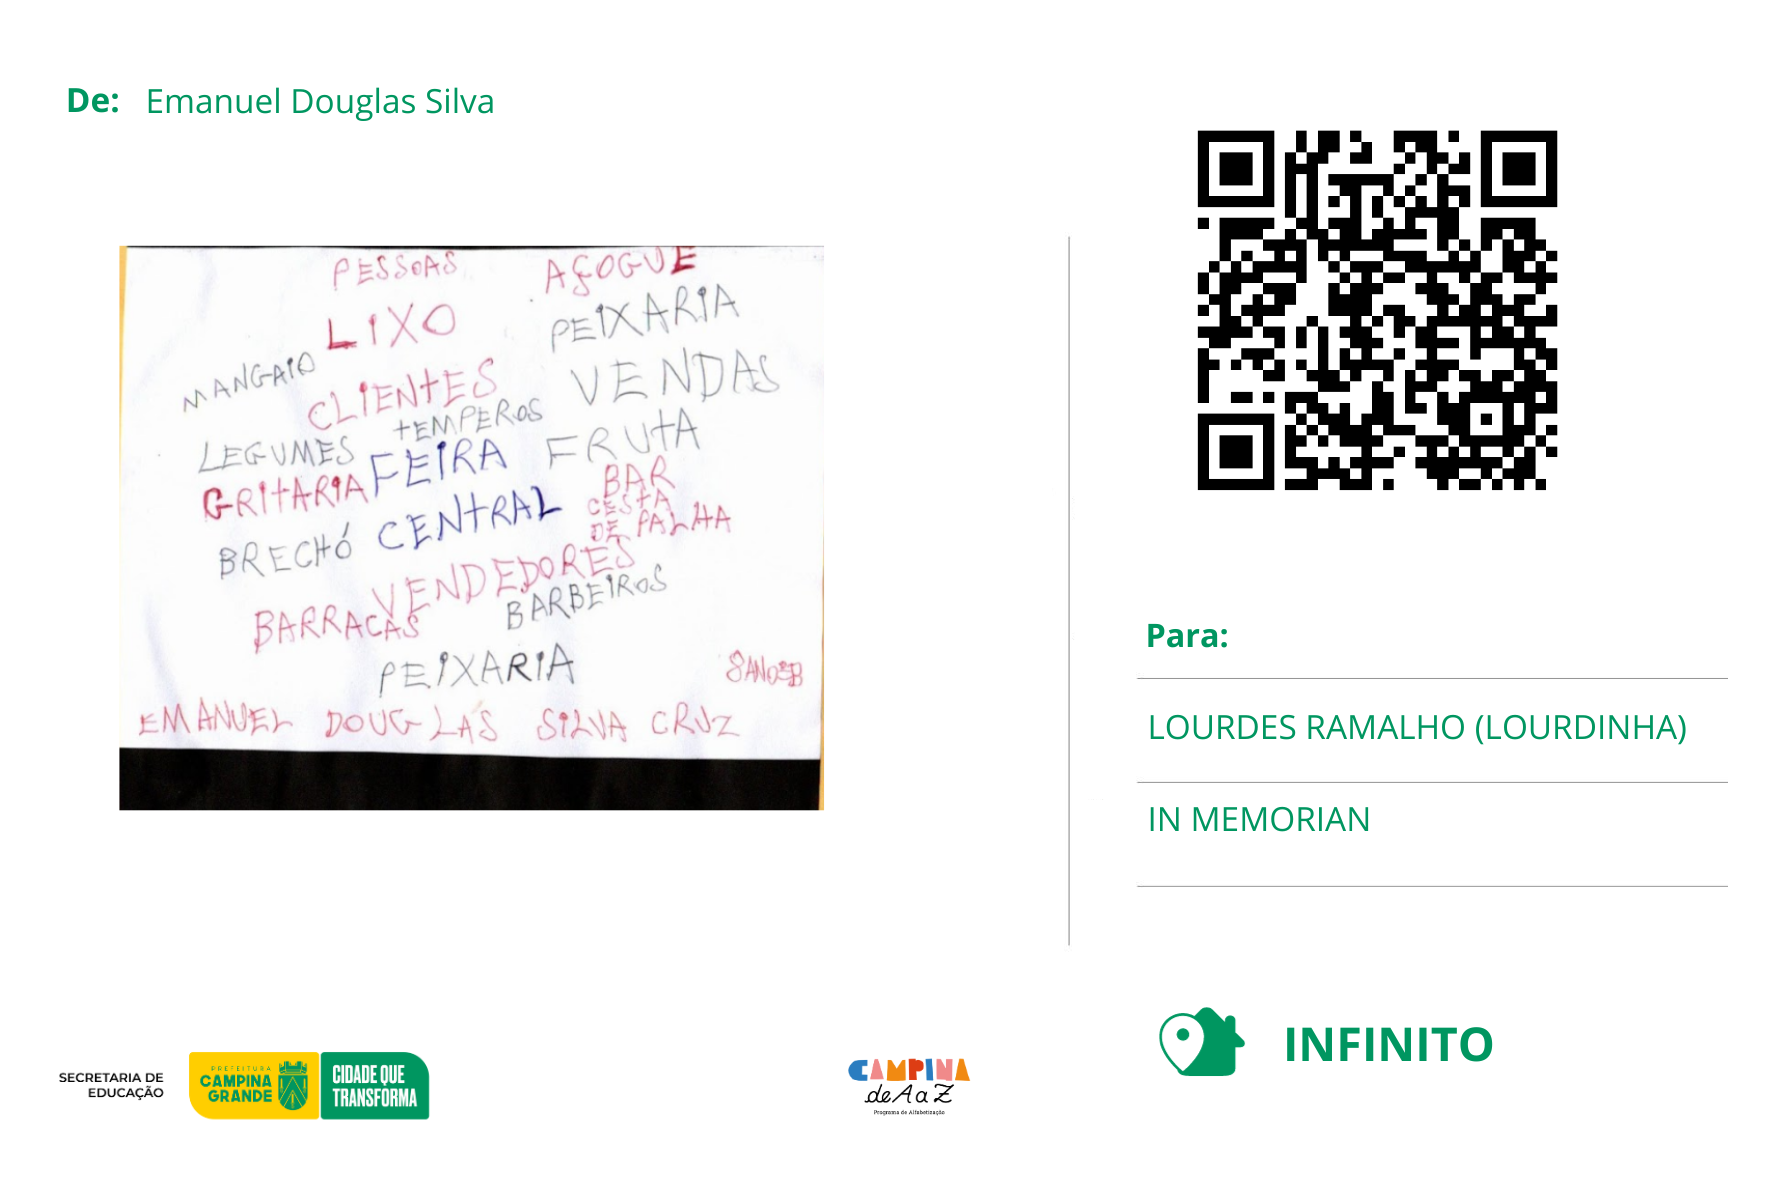 De: Emanuel Douglas Silva
PESSOAS
AÇOGUE
LIXO
PEIXARIA
MANGAIO
CLIENTES
VENDAS
TEMPEROS
LEGUMES
FEIRA
FRUTA
GRITARIA
BAR
CESTA
DE PALHA
CENTRAL
BRECHÓ
VENDEDORES
BARRACAS
BARBEIROS
PEIXARIA
8 ANOS B
EMANUEL DOUGLAS SILVA CRUZ
Para:
LOURDES RAMALHO (LOURDINHA)
IN MEMORIAN
INFINITO
SECRETARIA DE
EDUCAÇÃO
PREFEITURA
CAMPINA
GRANDE
CIDADE QUE
TRANSFORMA
CAMPINA
de A a Z
Programa de Alfabetização